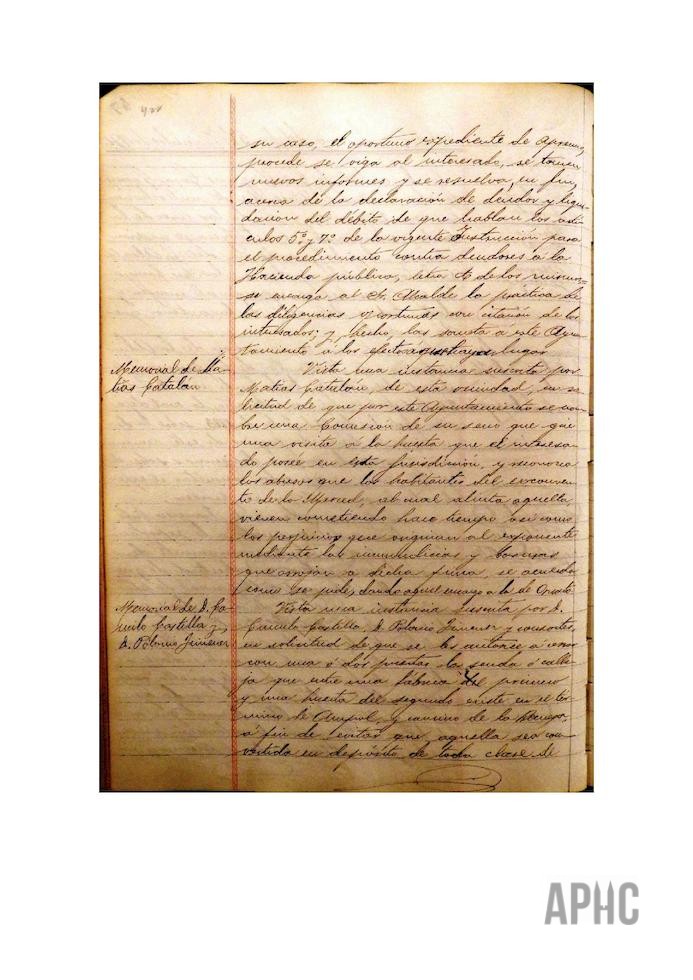 su caso, el oportuno expediente de apremio,
procede se oiga al interesado, se tomen
nuevos informes y se resuelva, en fin,
acerca de la declaración de deudor y liqui-
dación del débito de que hablan los artí-
culos 5º y 7º de la vigente Instrucción para
el procedimiento contra deudores á la
Hacienda pública, letra de los mismos
se encarga al Sr. Alcalde la práctica de
las diligencias oportunas con citación de los
interesados; y, hecho, las someta á este Ayun-
tamiento á los efectos á que haya lugar
Memorial de Ma-
tías Catalán
Vista una instancia suscrita por
Matías Catalán, de esta vecindad, en so-
licitud de que por este Ayuntamiento se nom-
bre una Comisión de su seno que gire
una visita á la huerta que el interesa-
do posée en esta jurisdicción, y reconozca
los abusos que los habitantes del exconven-
to de la Merced, al cual alinda aquella,
vienen cometiendo hace tiempo así como
los perjuicios que originan al exponente
mediante las inmundicias y basuras
que arrojan a dicha finca, se acuerda
como se pide, dando aquel encargo a la de
Memorial de D. Ca-
milo Castilla y
D. Polonio Jimenez
Vista una instancia suscrita por D.
Camilo Castilla, D. Polonio Jimenez y consortes,
en solicitud de que se les autorice á cerrar
con una ó dos puertas la senda ó calle-
ja que entre una fábrica del primero
y una huerta del segundo existe en el tér-
mino de y camino de la
á fin de evitar que aquella sea con-
vertida en depósito de toda clase de
APHC